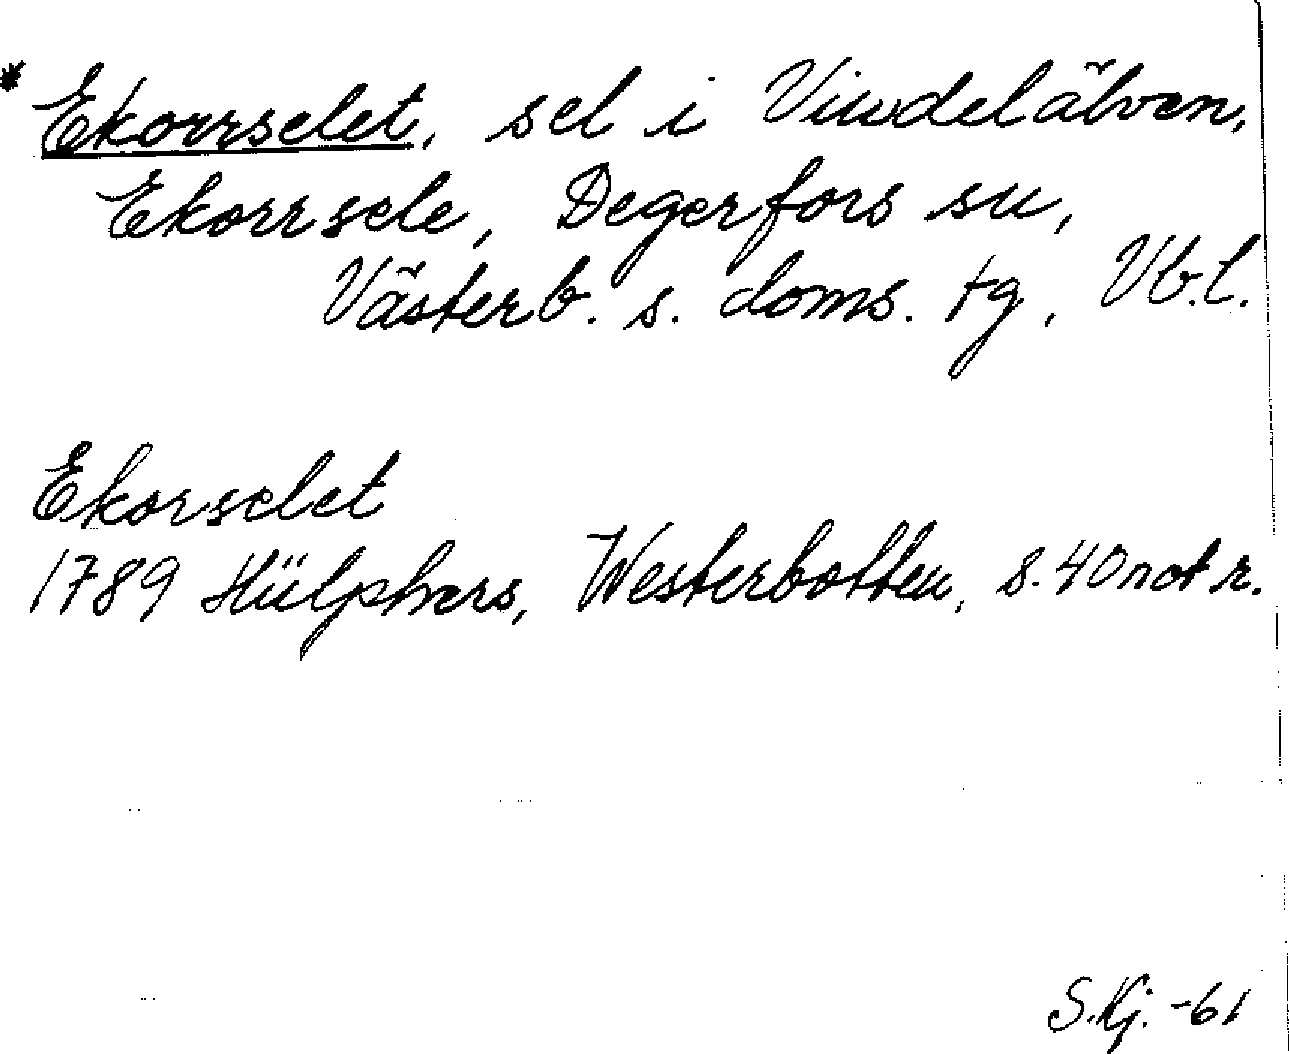 * Ekorrselet, sel i Vindelälven,
Ekorrsele, Degerfors sn,
Västerb. s. doms. tg, Vb.l.
Ekorselet
1789 Hülphers, Westerbotten, s. 40 not r.
S.Kj. -61